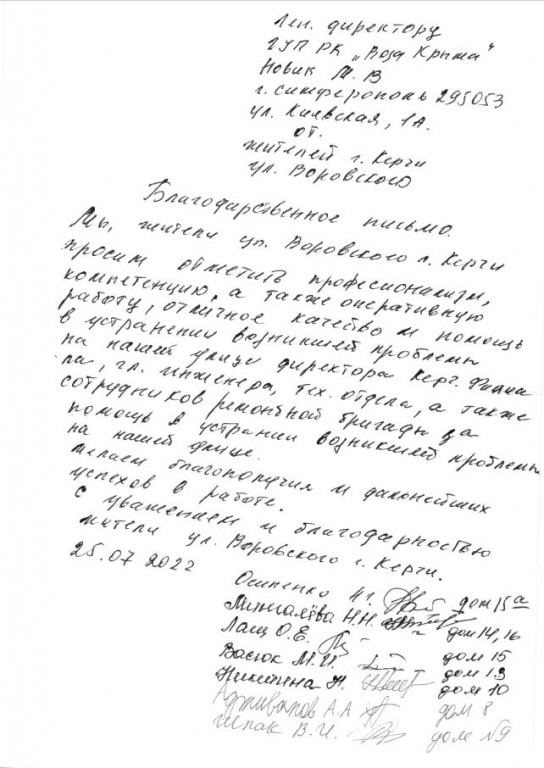 Ген. директору
ГУП РК „Вода Крыма"
Новик М. В
г. Симферополь 295053
ул. Киевская, 1А.
от.
жителей г. Керчи
ул. Воровского
Благодарственное письмо.
Мы, жители ул. Воровского г. Керчи
просим отметить професионализм,
компетенцию, а также оперативную
работу, отличное качество и помощь
в устранении возникшей проблемы
на нашей улице директора Керч. Филиа
ла, гл. инженера, тех. отдела, а также
сотрудников ремонтной бригады за
помощь в устрании возникшей проблемы
на нашей улице.
желаем благополучия и дальнейших
успехов в работе.
С уважением и благодарностью
жители ул. Воровского г. Керчи.
25.07 2022
Осипенко дом 15а
Н.Н. дом 14, 16
Лащ О.Е. дом 15
Васюк М.И. дом 13
Никитина Н. дом 10
А.А дом 8
Шпак В.И. дом №9